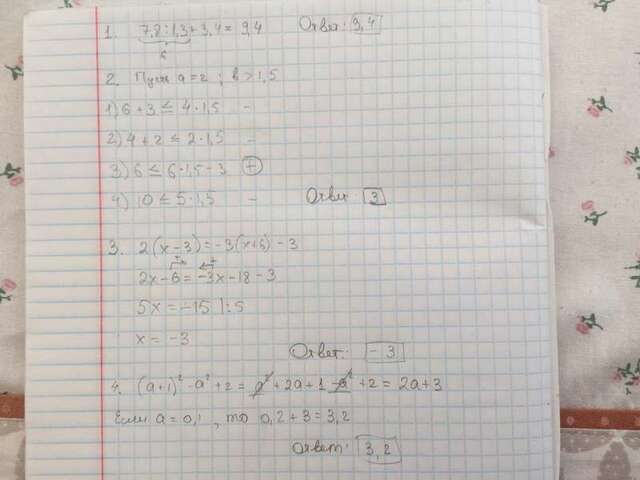 1. 7,8 : 1,3 + 3,4 = 9,4 Ответ: 9,4
6
2. Пусть a = 2 ; b > 1,5
1) 6 + 3 ≤ 4 · 1,5 -
2) 4 + 2 ≤ 2 · 1,5 -
3) 6 ≤ 6 · 1,5 - 3 +
4) 10 ≤ 5 · 1,5 - Ответ: 3
3. 2(x - 3) = -3(x + 6) - 3
2x - 6 = -3x - 18 - 3
5x = -15 | : 5
x = -3
Ответ: -3
4. (a + 1)² - a² + 2 = a² + 2a + 1 - a² + 2 = 2a + 3
Если a = 0,1, то 0,2 + 3 = 3,2
Ответ: 3,2